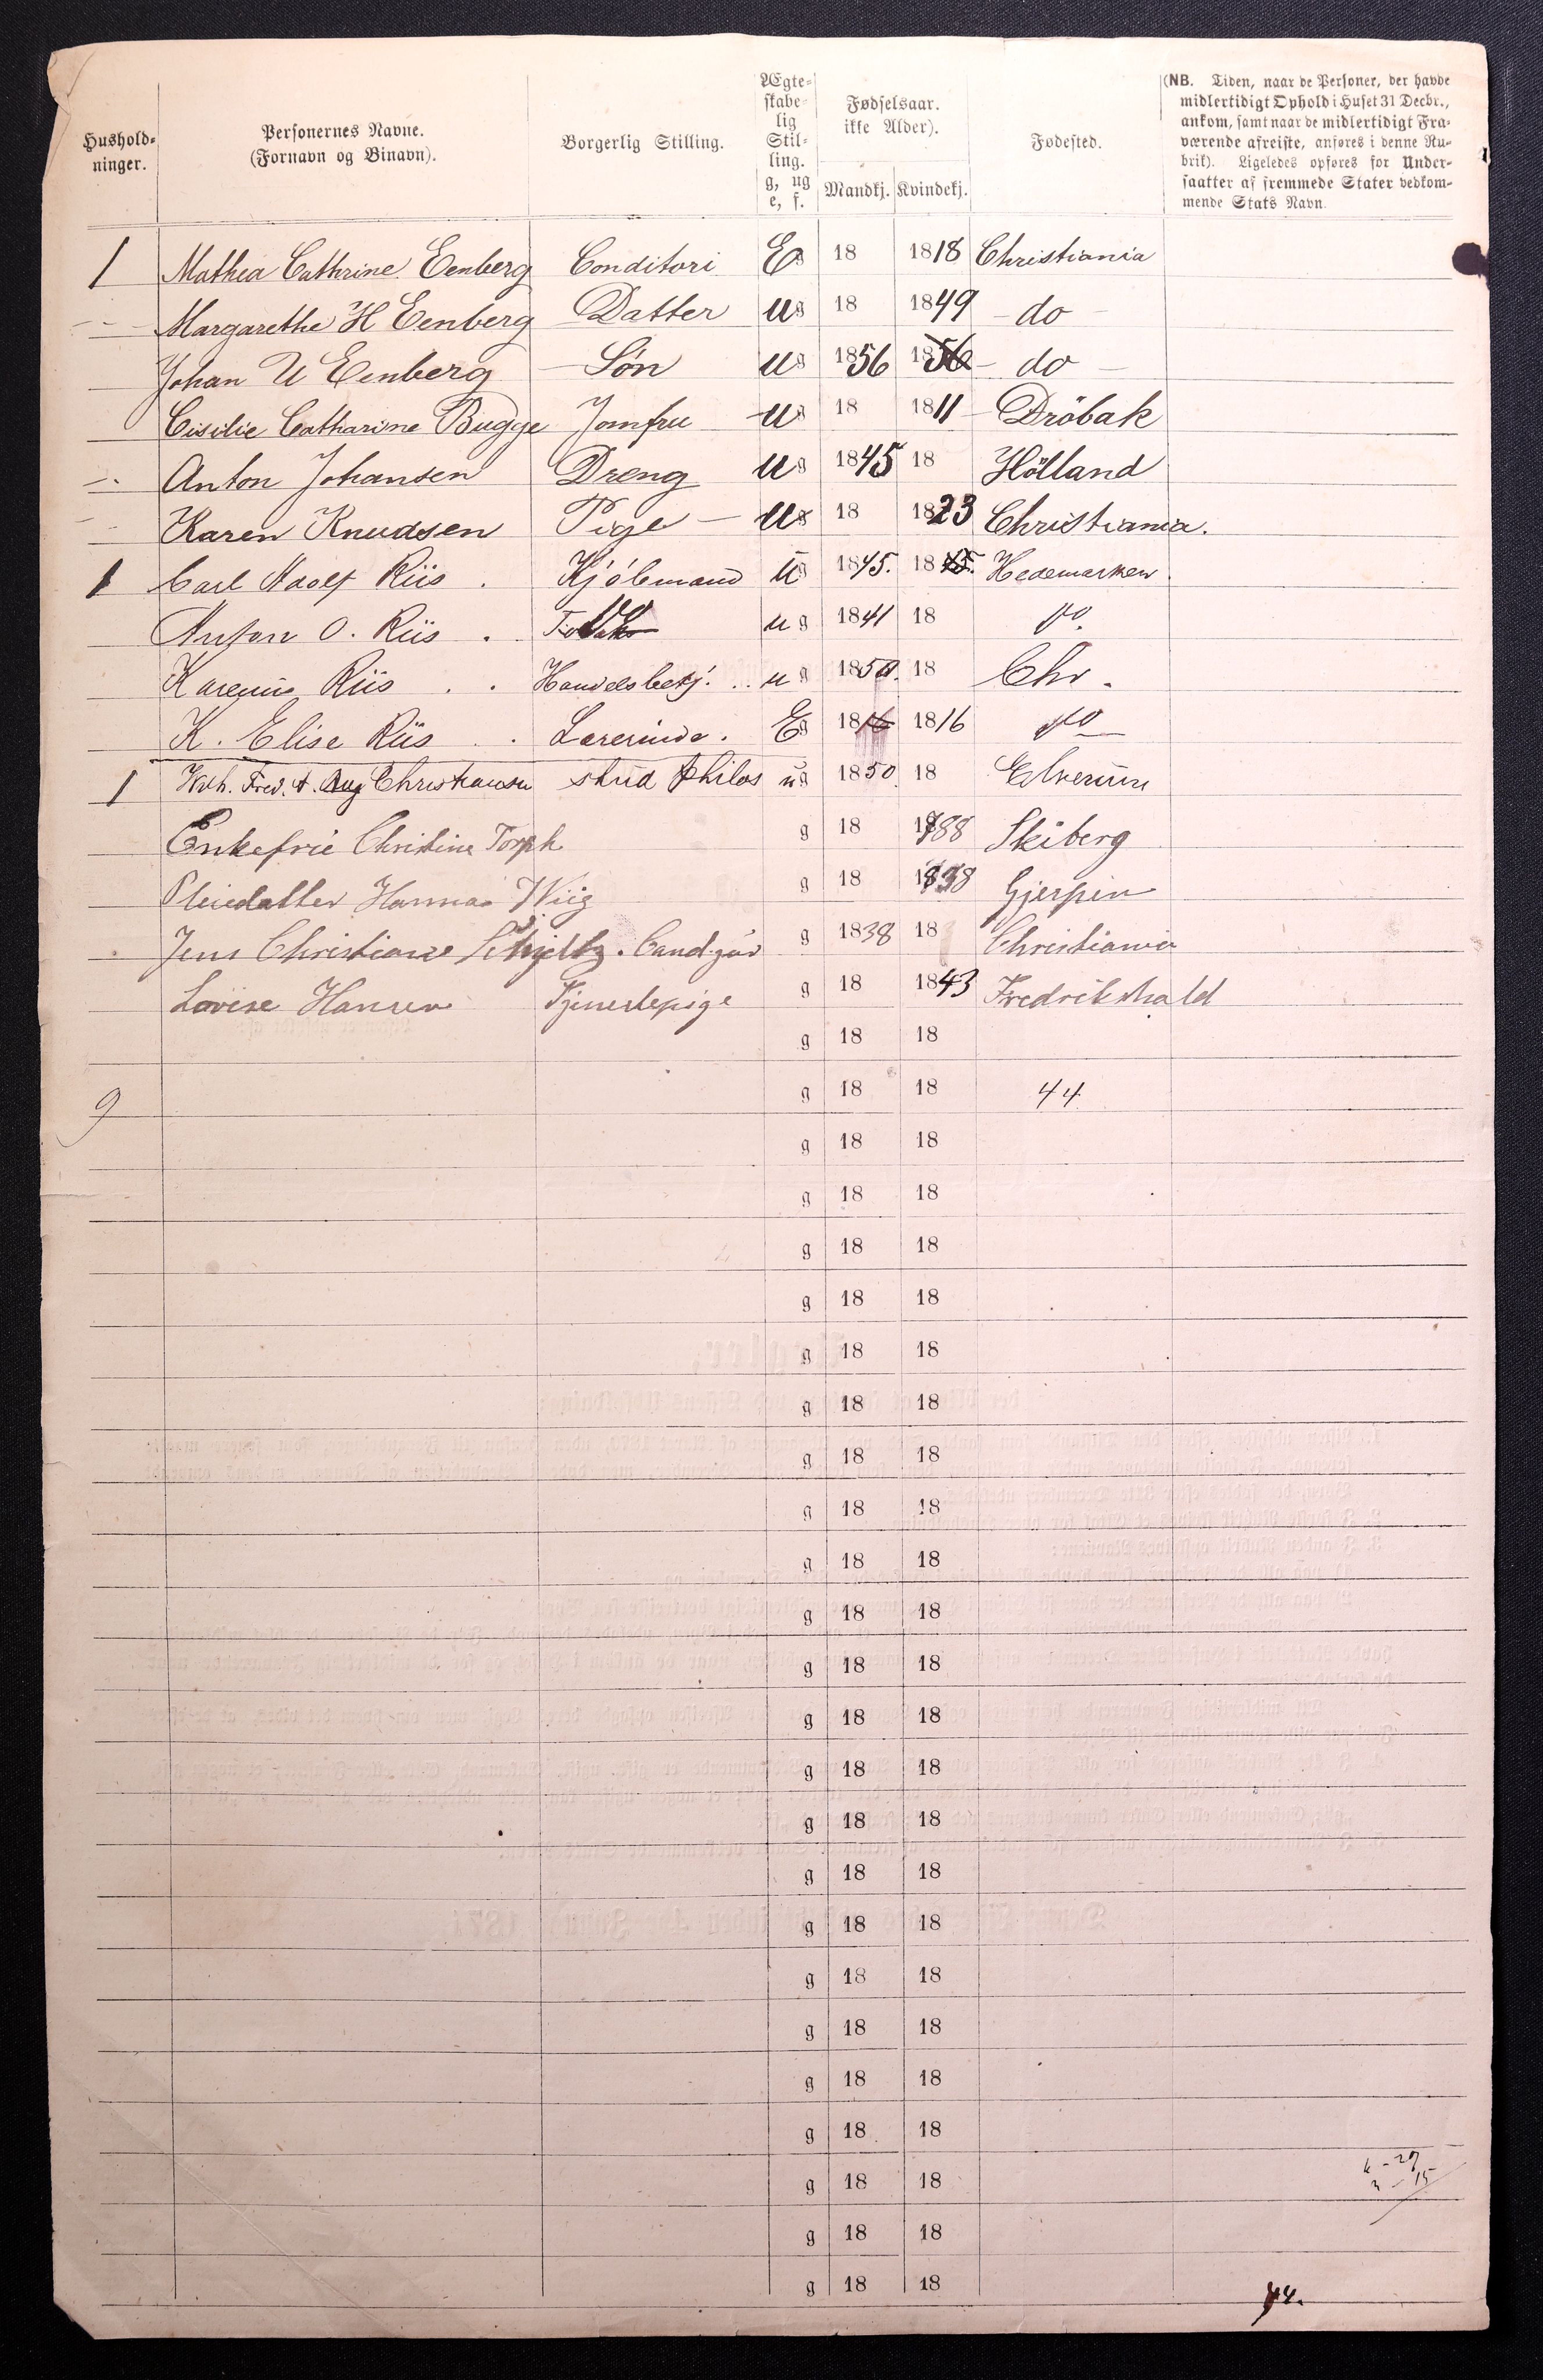 Hushold-
ninger.
Personernes Navne.
(Fornavn og Binavn).
Borgerlig Stilling.
Ægte-
skabe-
lig
Stil-
ling.
g, ug
e, f.
Fødselsaar.
ikke Alder).
Mandkj. Kvindekj.
Fødested.
(NB. Tiden, naar de Personer, der havde
midlertidigt Ophold i Huset 31 Decbr.,
ankom, samt naar de midlertidigt Fra-
værende afreiste, anføres i denne Ru-
brik). Ligeledes opføres for Under-
saatter af fremmede Stater vedkom-
mende Stats Navn.
1 Mathea Cathrine Eenberg Conditori E g 18 1818 Christiania
Margarethe H Eenberg Datter u g 18 1849 - do -
Johan U Eenberg - Søn u g 1856 1856 - do -
Cisilie Catharine Bugge Jomfru - u g 18 1811 - Dröbak
Anton Johansen Dreng u g 1845 18 Hölland
Karen Knudsen Pige - u g 18 1823 Christiania.
1 Carl Adolf Riis . Kjøbmand u g 1845. 1845. Hedemarken.
Anton O. Riis . do u g 1841 18 do.
Karenus Riis . . Handelsbetj. .. u g 1850. 18 Chr.
K. Elise Riis . . Lærerinde. E g 1816 1816 do
1 Fred. A. Aug Christiansen stud philos u g 1850. 18 Elverum
Enkefrue Christine Torph g 18 1788 Skiberg
Pleiedatter Hanna Wiig g 18 1838 Gjerpen
Jens Christian Schjeltz. Cand. jur g 1838 18 Christiania
Lovise Hansen Tjenestepige g 18 1843 Fredrikshald
g 18 18
9 g 18 18 44
g 18 18
g 18 18
g 18 18
g 18 18
g 18 18
g 18 18
g 18 18
g 18 18
g 18 18
g 18 18
g 18 18
g 18 18
g 18 18
g 18 18
g 18 18
g 18 18
g 18 18
g 18 18
g 18 18
g 18 18
g 18 18 k - 29
m - 15
g 18 18
g 18 18
44.